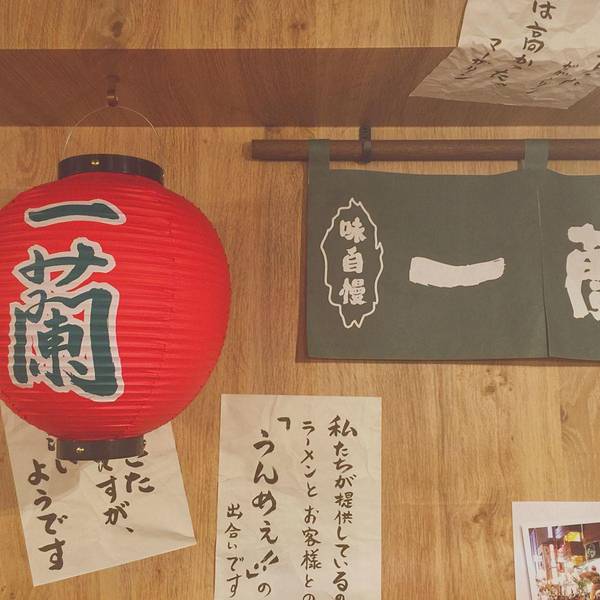 一蘭
味自慢
一蘭
は高かった
マーガリン
きた
ですが、
ようです
私たちが提供しているの
ラーメンとお客様との
「うんめぇ!!」の
出合いです